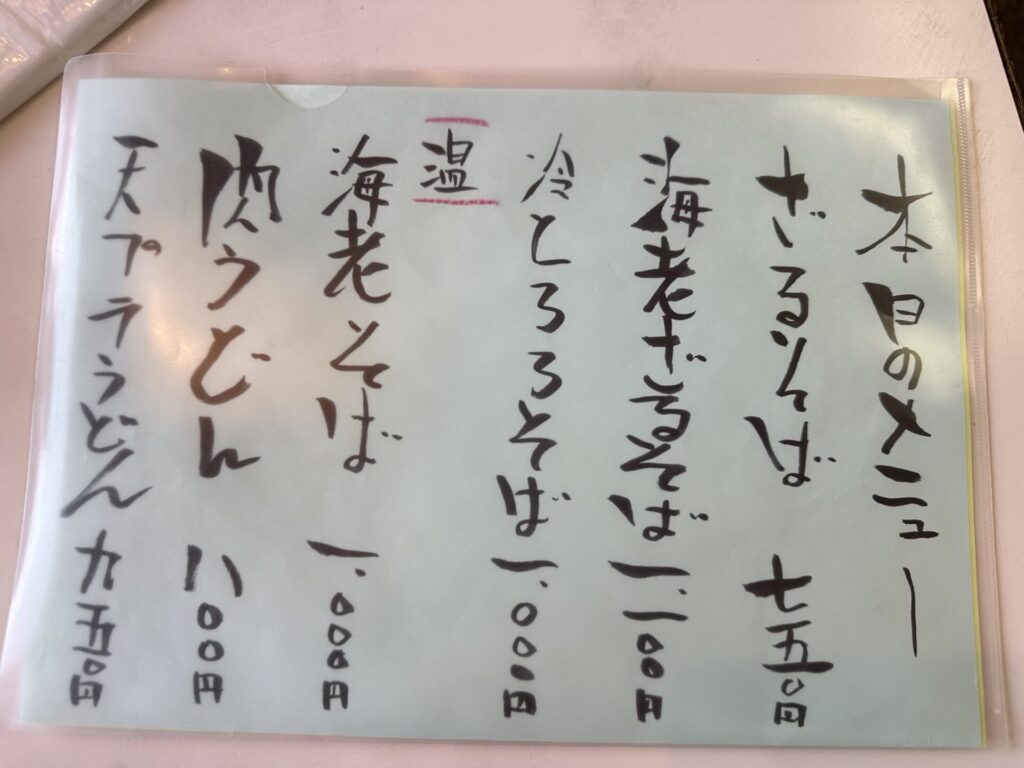 本日のメニュー
ざるそば 七五〇円
海老ざるそば 一、一〇〇円
冷とろろそば 一、〇〇〇円
温
海老そば 一、〇〇〇円
肉うどん 八〇〇円
天プラうどん 九五〇円